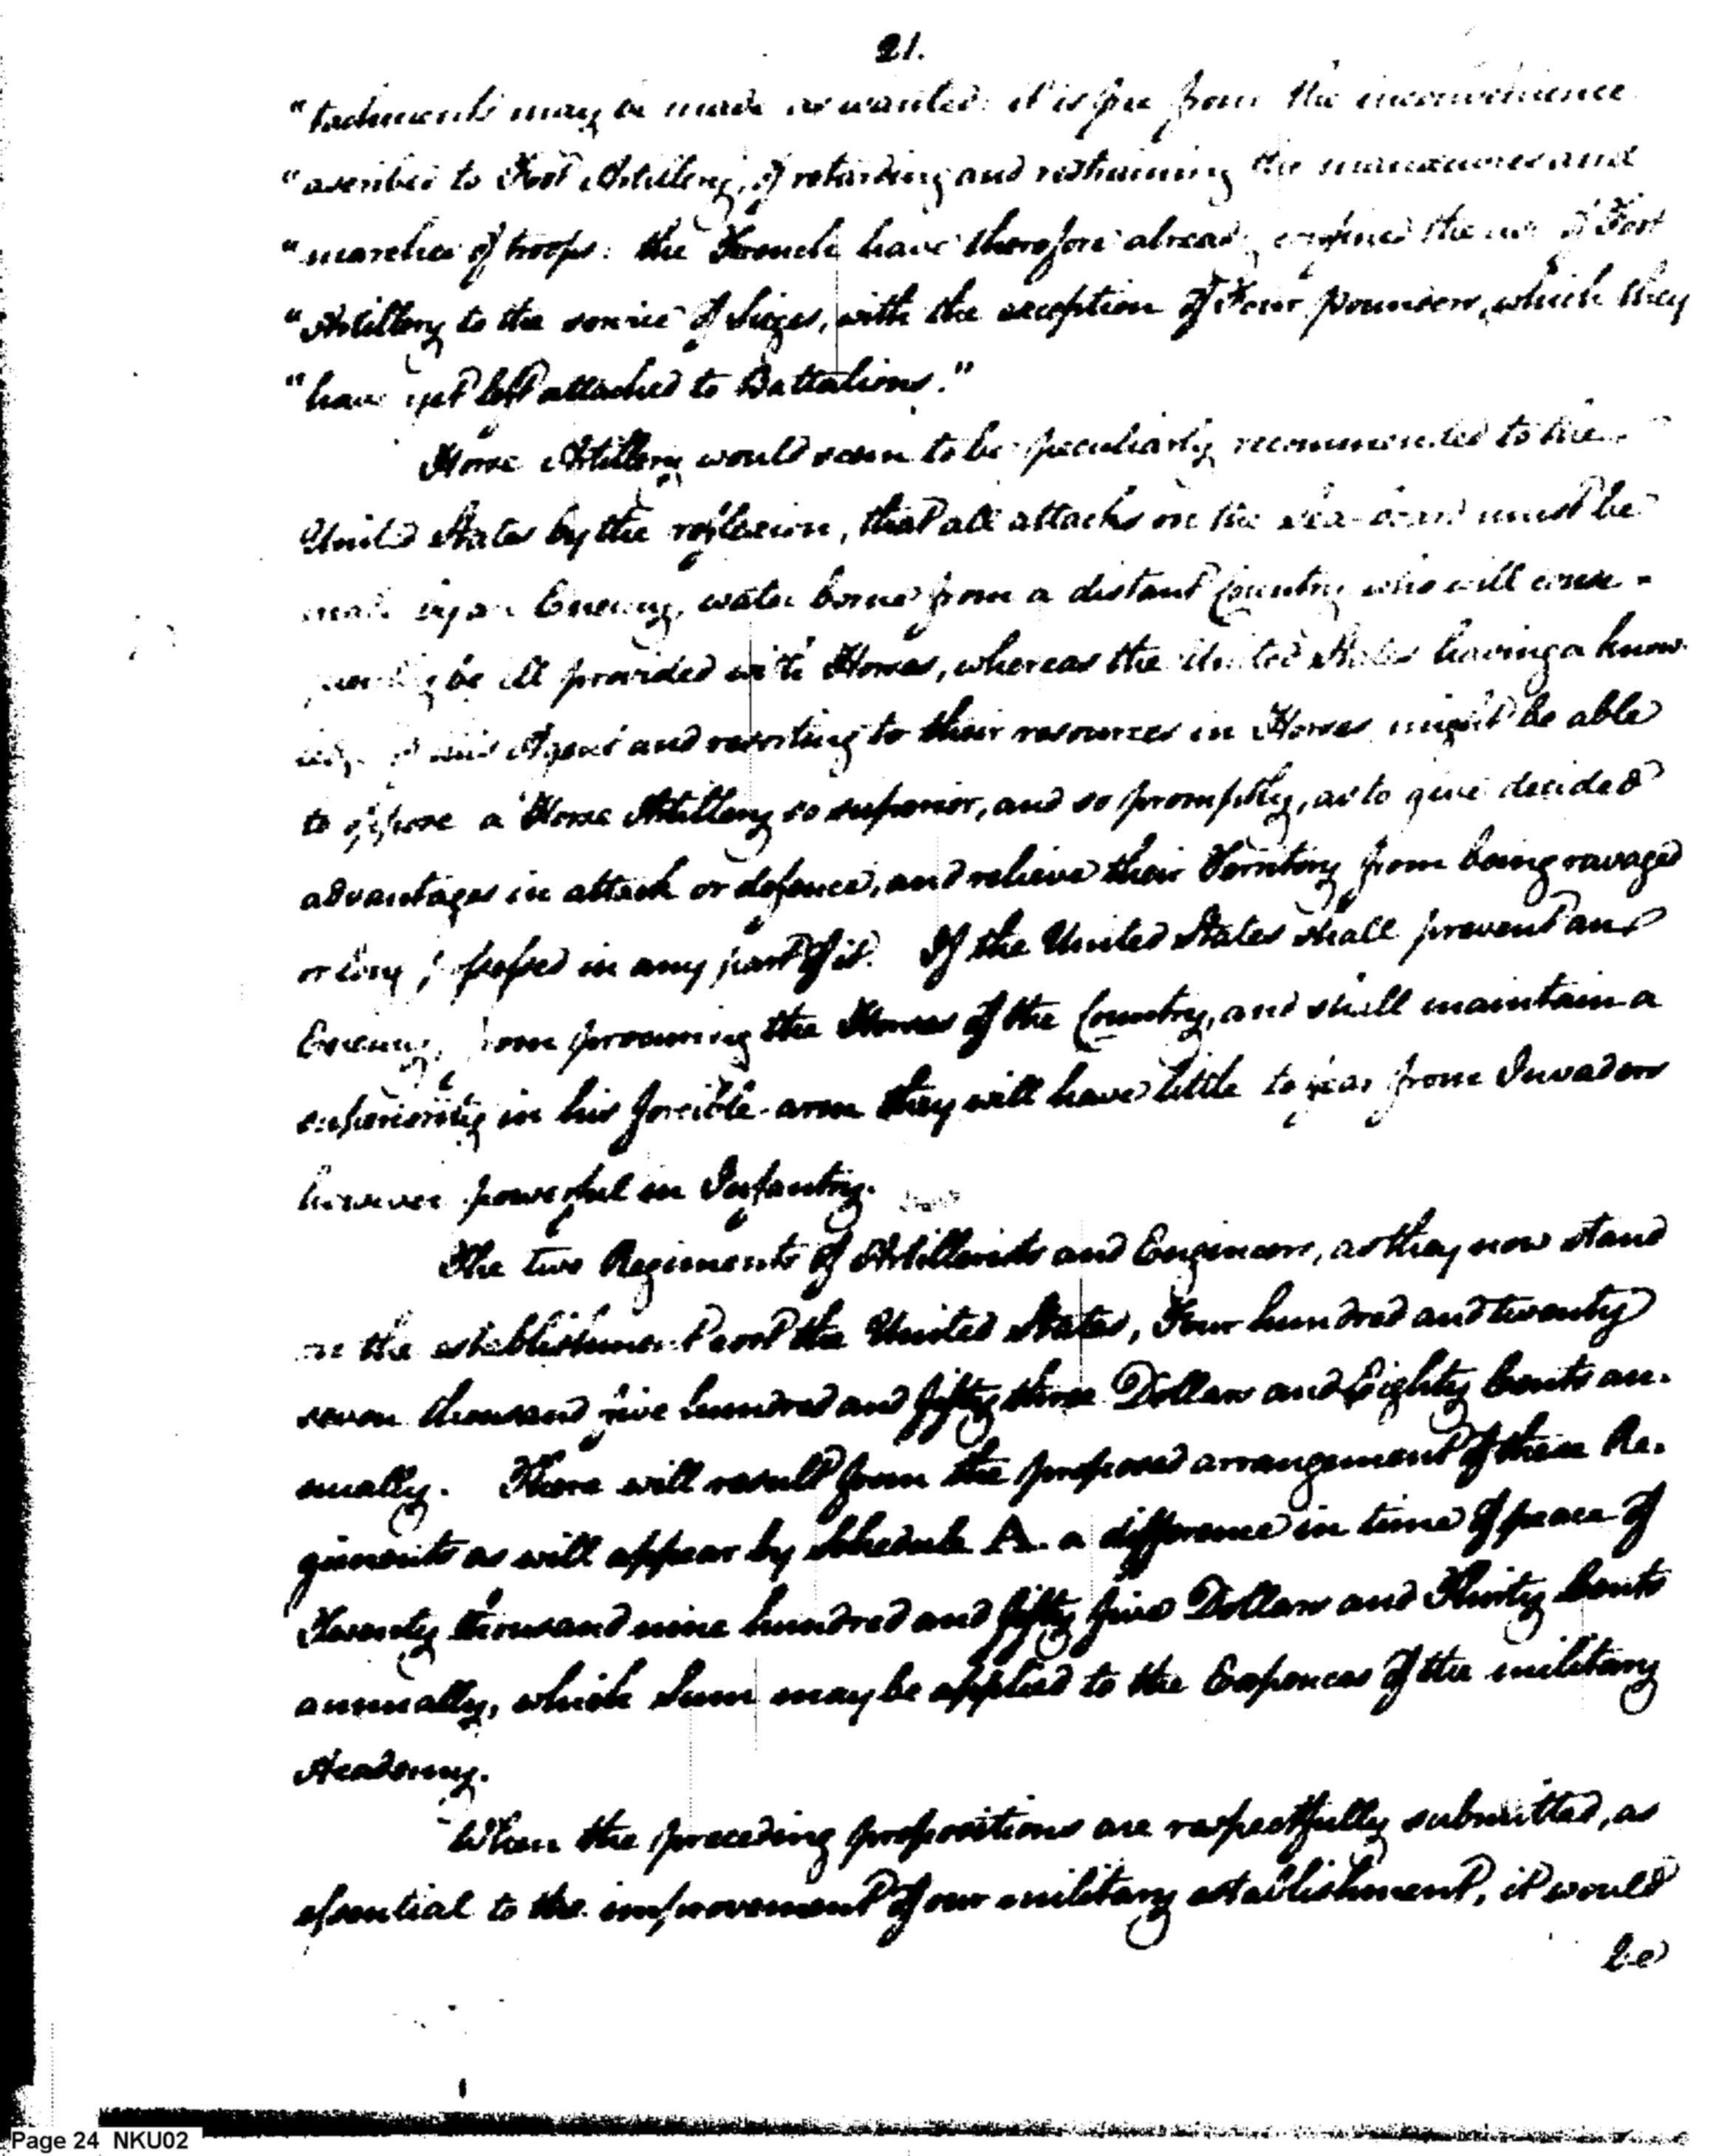 21.
"tachments may be made as wanted: it is free from the inconvenience
"ascribed to Foot Artillery, of retarding and restraining the manoeuvres and
"marches of troops: the French have therefore already confined the use of Foot
"Artillery to the service of Sieges, with the exception of Four pounders, which they
"have yet left attached to Battalions."
Horse Artillery would seem to be peculiarly recommended to the
United States by the reflexion, that all attacks on the Sea-board must be
made by an Enemy, water borne from a distant Country who will conse-
quently be ill provided with Horses, whereas the United States having a know
ledge of this Agent and resorting to their resources in Horses might be able
to oppose a Horse Artillery so superior, and so promptly, as to give decided
advantages in attack or defence, and relieve their Territory from being ravaged
or long possessed in any part of it. If the United States shall prevent an
Enemy, from procuring the Horses of the Country, and shall maintain a
superiority in his forcible arm they will have little to fear from Invaders
however powerful in Infantry.
The two Regiments of Artillerists and Engineers, as they now stand
on the establishment cost the United States, Four hundred and twenty
seven thousand five hundred and fifty three Dollars and Eighty Cents an-
nually. There will result from the proposed arrangement of these Re-
giments as will appear by Schedule A. a difference in time of peace of
Twenty thousand nine hundred and fifty five Dollars and Thirty Cents
annually, which Sum may be applied to the Expences of the military
Academy.
When the preceding propositions are respectfully submitted, as
essential to the improvement of our military establishment, it would
be
Page 24 NKU02